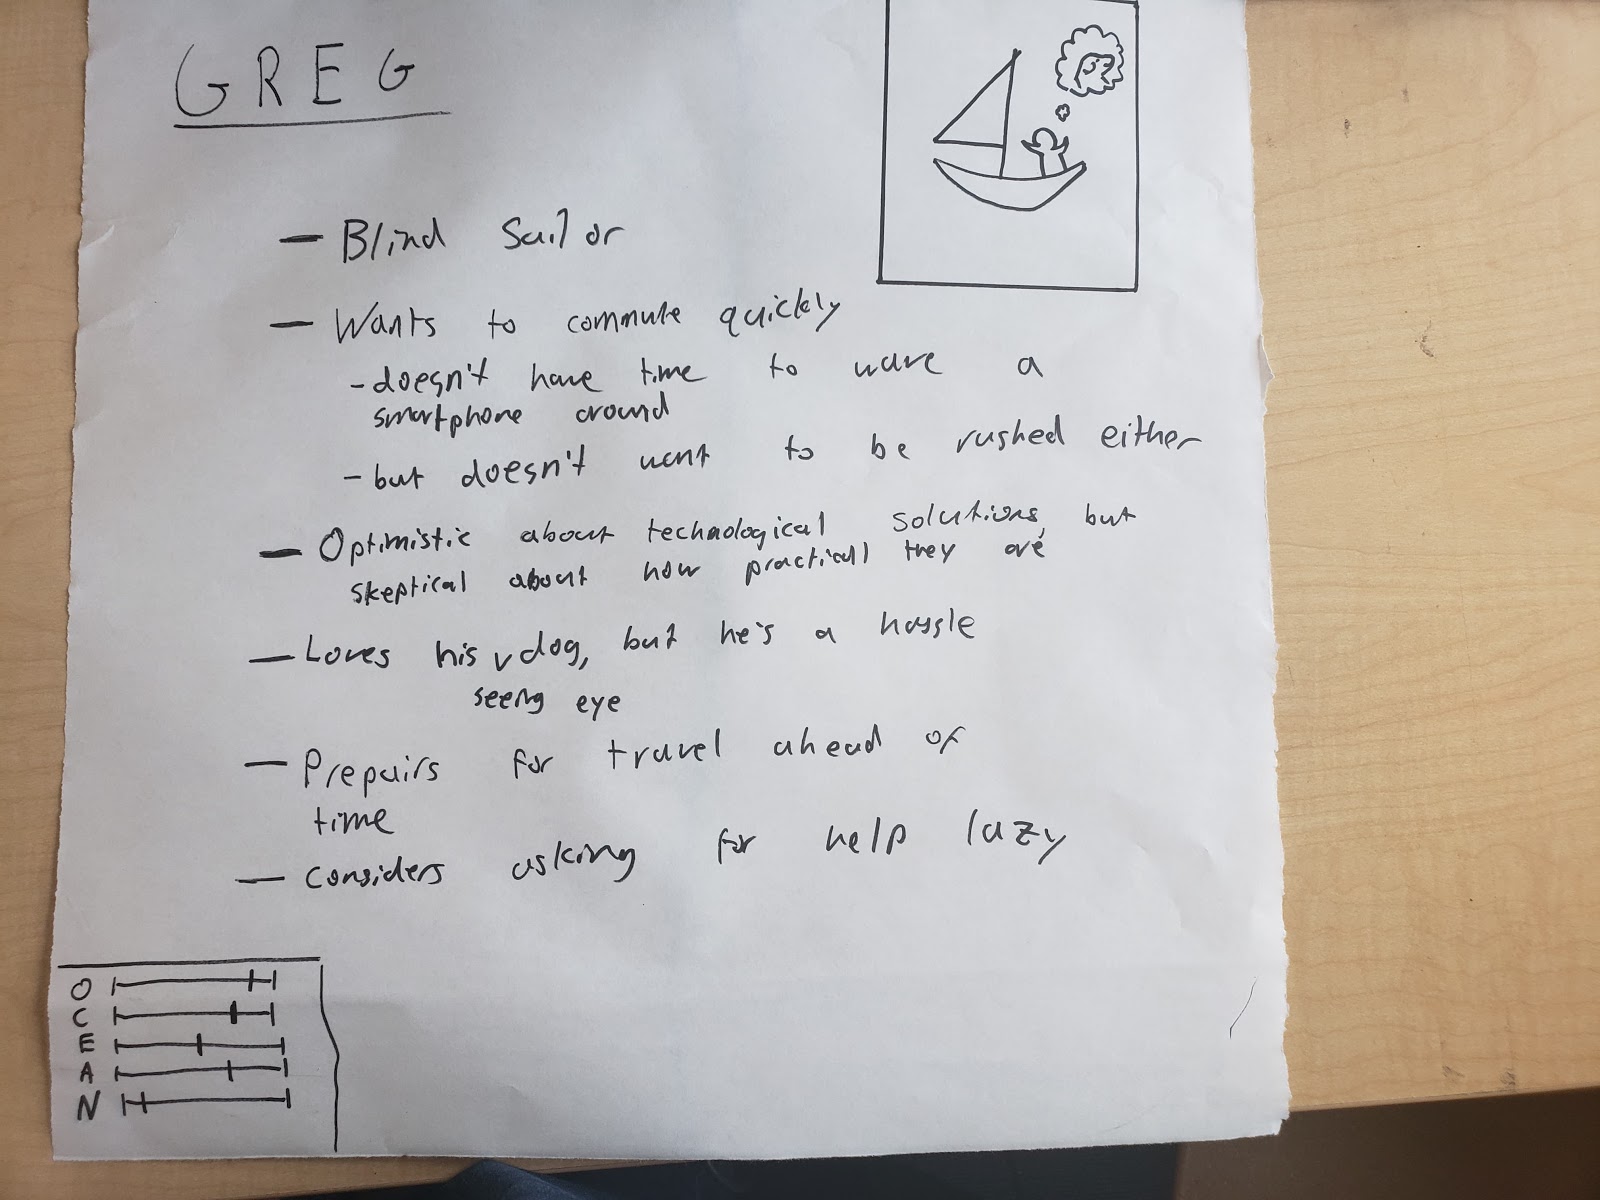 GREG
– Blind Sailor
– Wants to commute quickly
- doesn't have time to wave a
smartphone around
- but doesn't want to be rushed either
– Optimistic about technological solutions, but
skeptical about how practical they are
– Loves his v dog, but he's a hassle
seeing eye
– Prepairs for travel ahead of
time
– Considers asking for help lazy
O
C
E
A
N